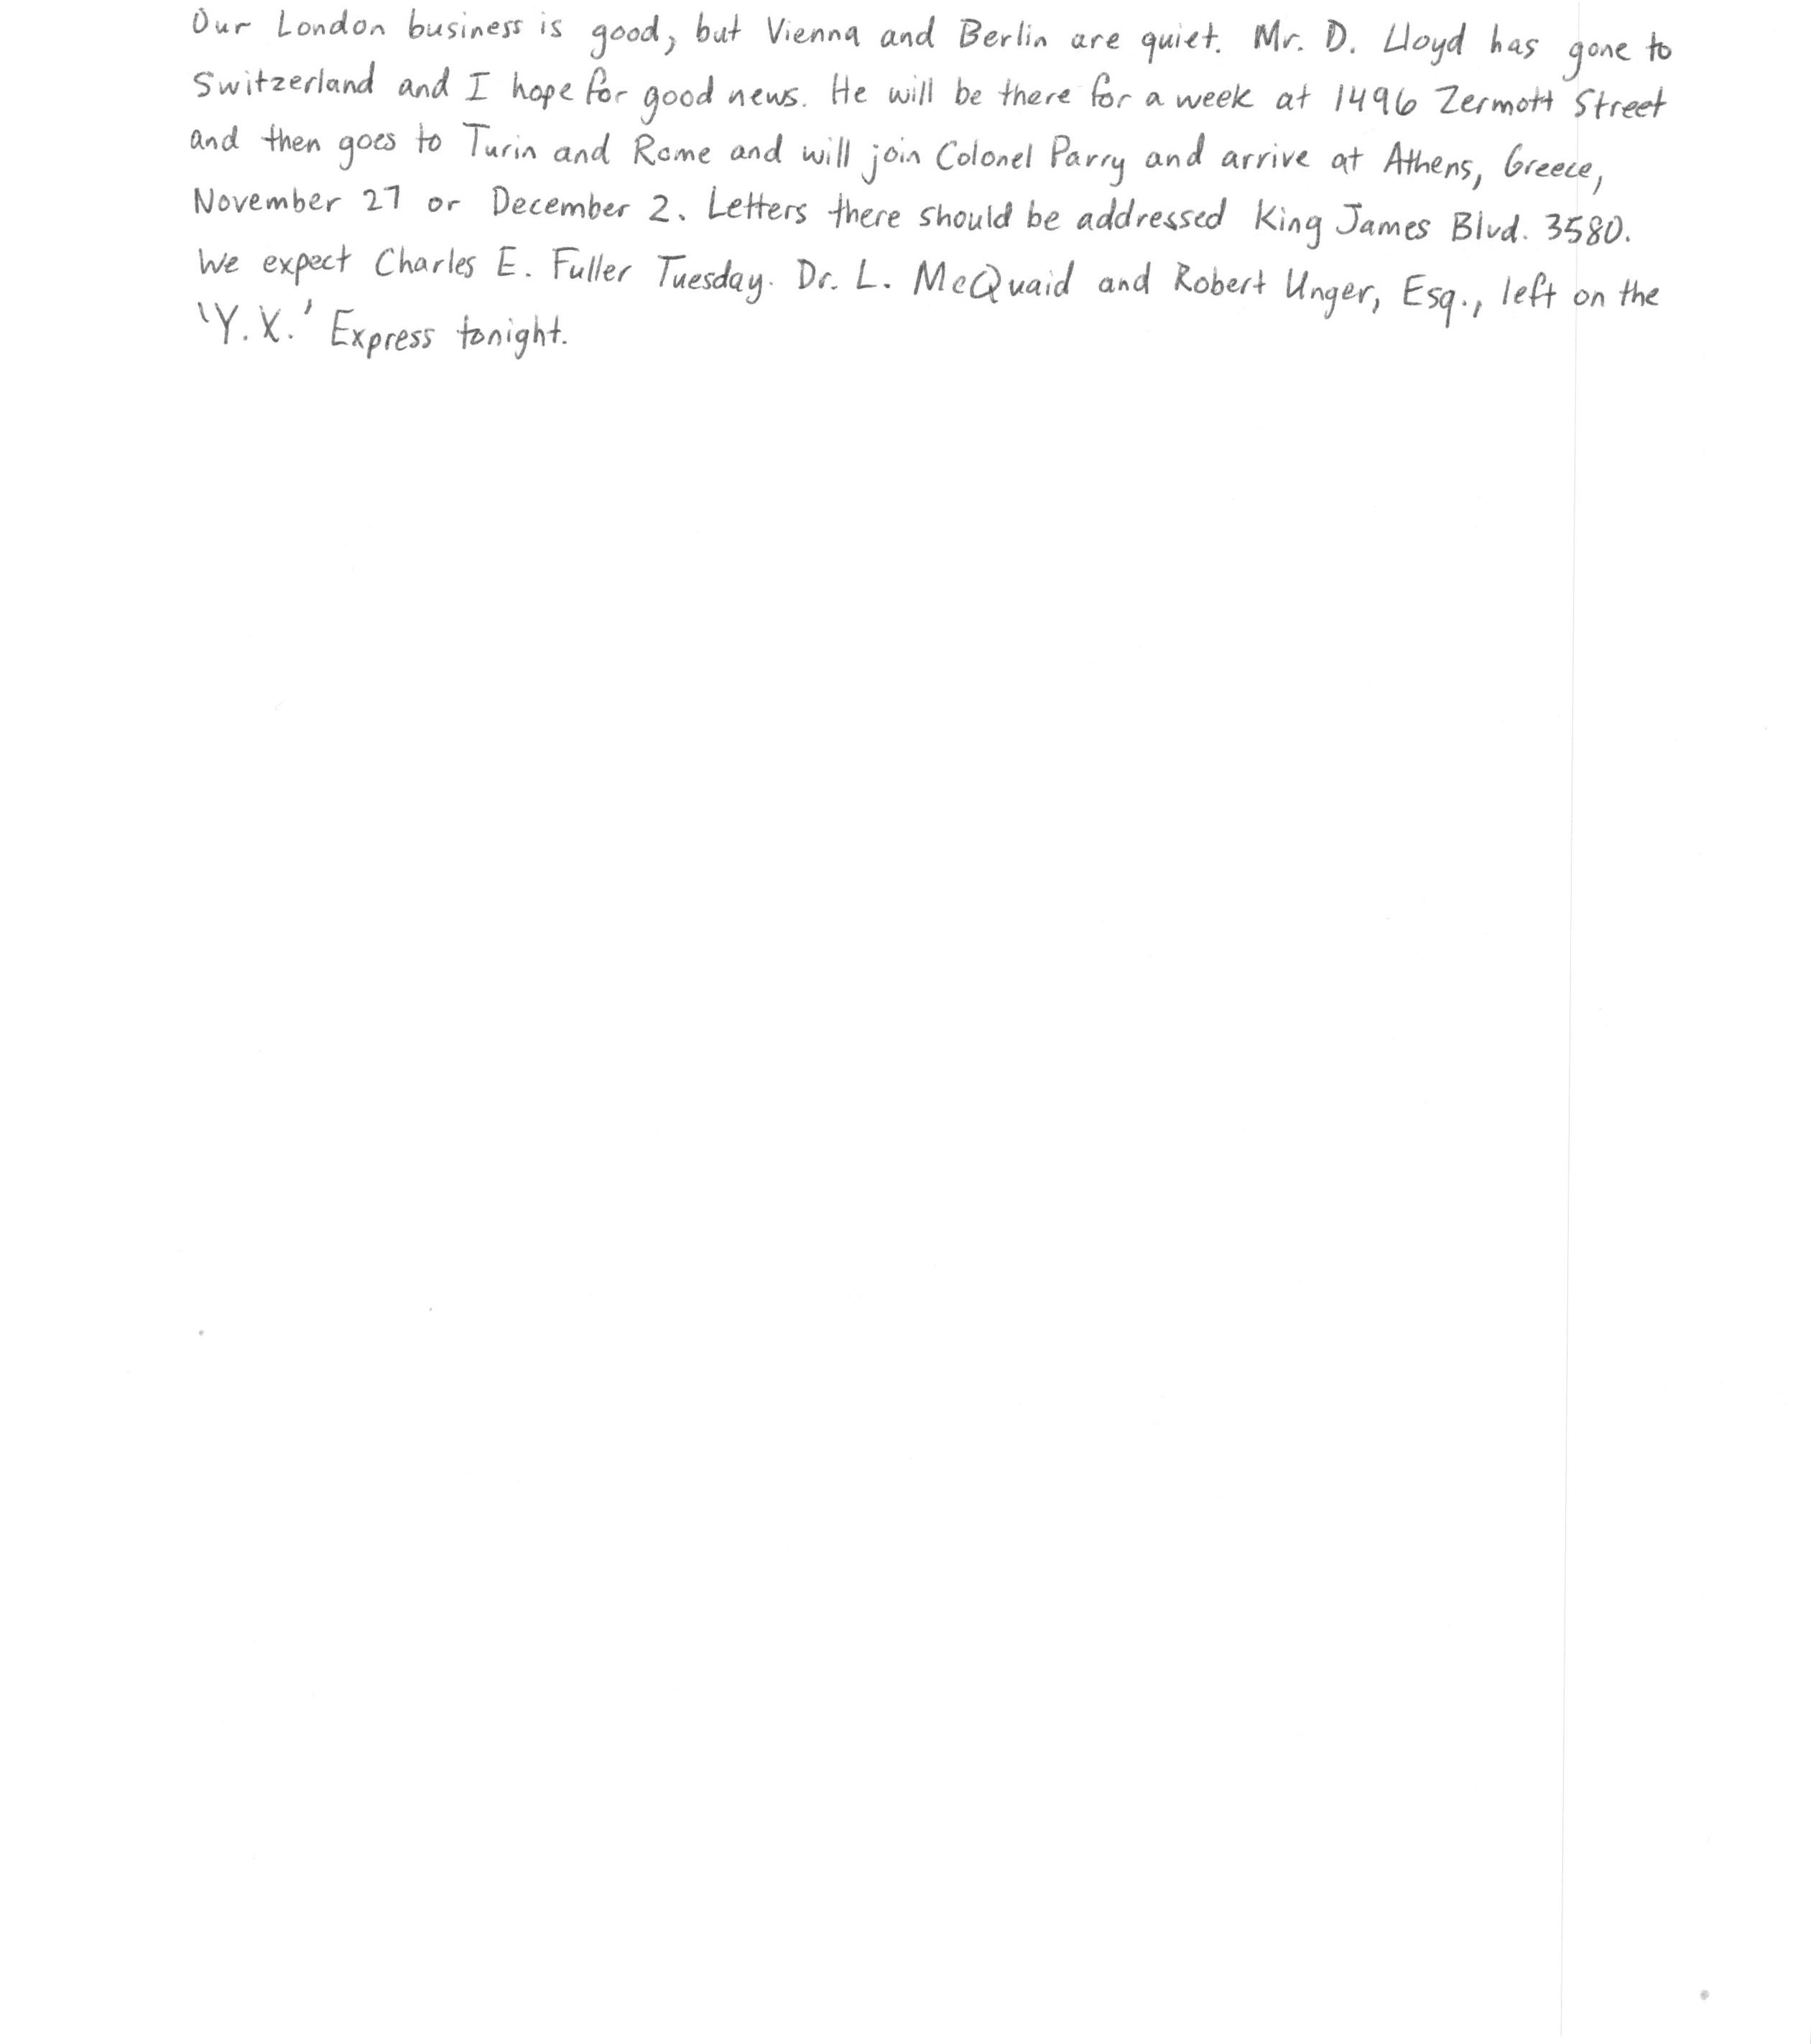 Our London business is good, but Vienna and Berlin are quiet. Mr. D. Lloyd has gone to
Switzerland and I hope for good news. He will be there for a week at 1496 Zermott Street
and then goes to Turin and Rome and will join Colonel Parry and arrive at Athens, Greece,
November 27 or December 2. Letters there should be addressed King James Blvd. 3580.
We expect Charles E. Fuller Tuesday. Dr. L. McQuaid and Robert Unger, Esq., left on the
'Y.X.' Express tonight.